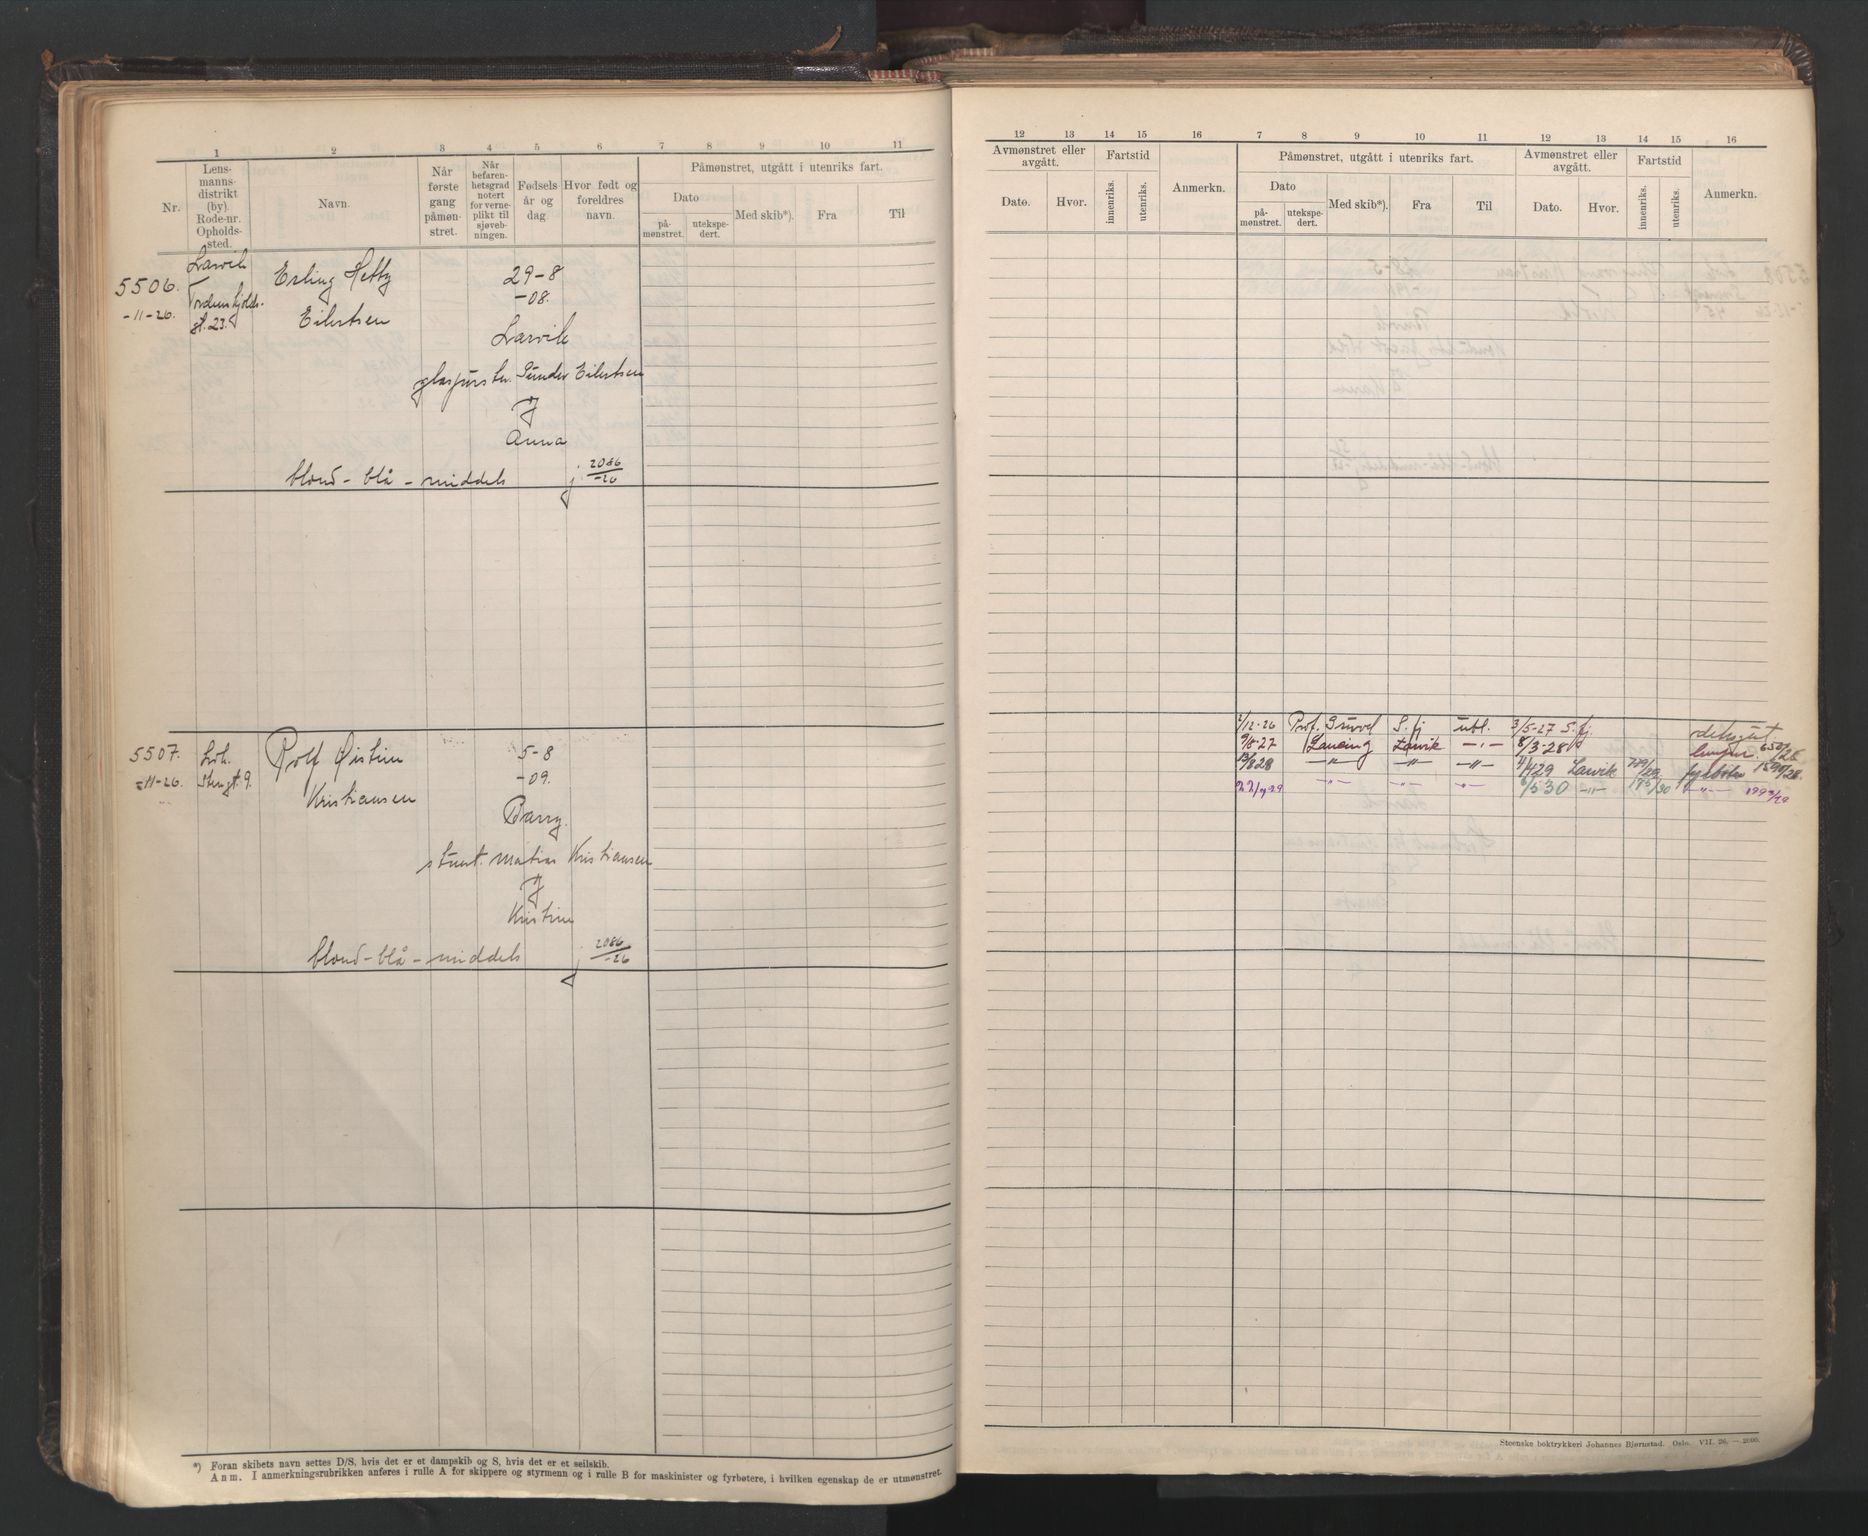 1 2 3 4 5 6 7 8 9 10 11
Nr.
Lens-
manns-
distrikt
(by).
Rode-nr.
Opholds-
sted.
Navn.
Når
første
gang
påmøn-
stret.
Når
befaren-
hetsgrad
notert
for verne-
plikt til
sjøveb-
ningen.
Fødsels
år og
dag.
Hvor født og
foreldres
navn.
Påmønstret, utgått i utenriks fart.
Dato
på-
mønstret.
utekspe-
dert.
Med skib*).
Fra
Til
5506.
-11-26.
Larvik
Tordenskjolds-
gt. 23.
Erling Hetty
Eilertsen
29-8
-08.
Larvik
Gunder Eilertsen
og
Anna
blond - blå - middels
2086
-26
5507.
-11-26.
Rolf Øistein
Kristiansen
5-8
-09.
Barry.
stuert. Matias Kristiansen
og
Kristine
blond - blå - middels
2086
-26
*) Foran skibets navn settes D/S, hvis det er et dampskib og S, hvis det er et seilskib.
Anm. I anmerkningsrubrikken anføres i rulle A for skippere og styrmenn og i rulle B for maskinister og fyrbøtere, i hvilken egenskap de er utmønstret.
12 13 14 15 16 7 8 9 10 11 12 13 14 15 16
Avmønstret eller
avgått.
Dato.
Hvor.
Fartstid
innenriks.
utenriks.
Anmerkn.
Påmønstret, utgått i utenriks fart.
Dato
på-
mønstret.
utekspe-
dert.
Med skib*).
Fra
Til
Avmønstret eller
avgått.
Dato.
Hvor.
Fartstid
innenriks.
utenriks.
Anmerkn.
2/12-26 Prof. Gruvel S.fj ubl. 3/5-27 S.fj. dekksgut
9/8-27 Lancing Larvik -"- 8/3-28 lemper 650/28
13/828 -"- -"- -"- 4/429 Larvik 779/29 fyrbøter 1590/28
-"- -"- -"- 6/530 -"- 185/30 -"-
Steenske boktrykkeri Johannes Bjørnstad. Oslo. VII. 26. — 2000.